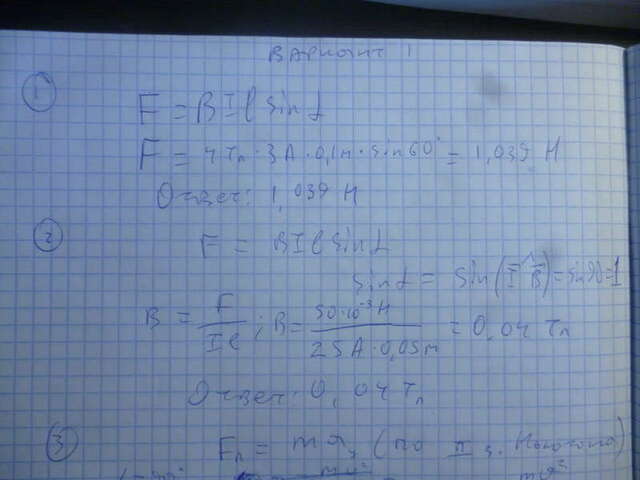 Вариант 1
①
F = BIl sin α
F = 4 Тл · 3 А · 0,1 м · sin 60° = 1,039 Н
Ответ: 1,039 Н
②
F = BIl sin α
sin α = sin(I^B) = sin 90 = 1
B = F/Il ; B = 50·10⁻³ Н / 25 А · 0,05 м = 0,04 Тл
Ответ: 0,04 Тл
③
Fл = ma (по II з. Ньютона)